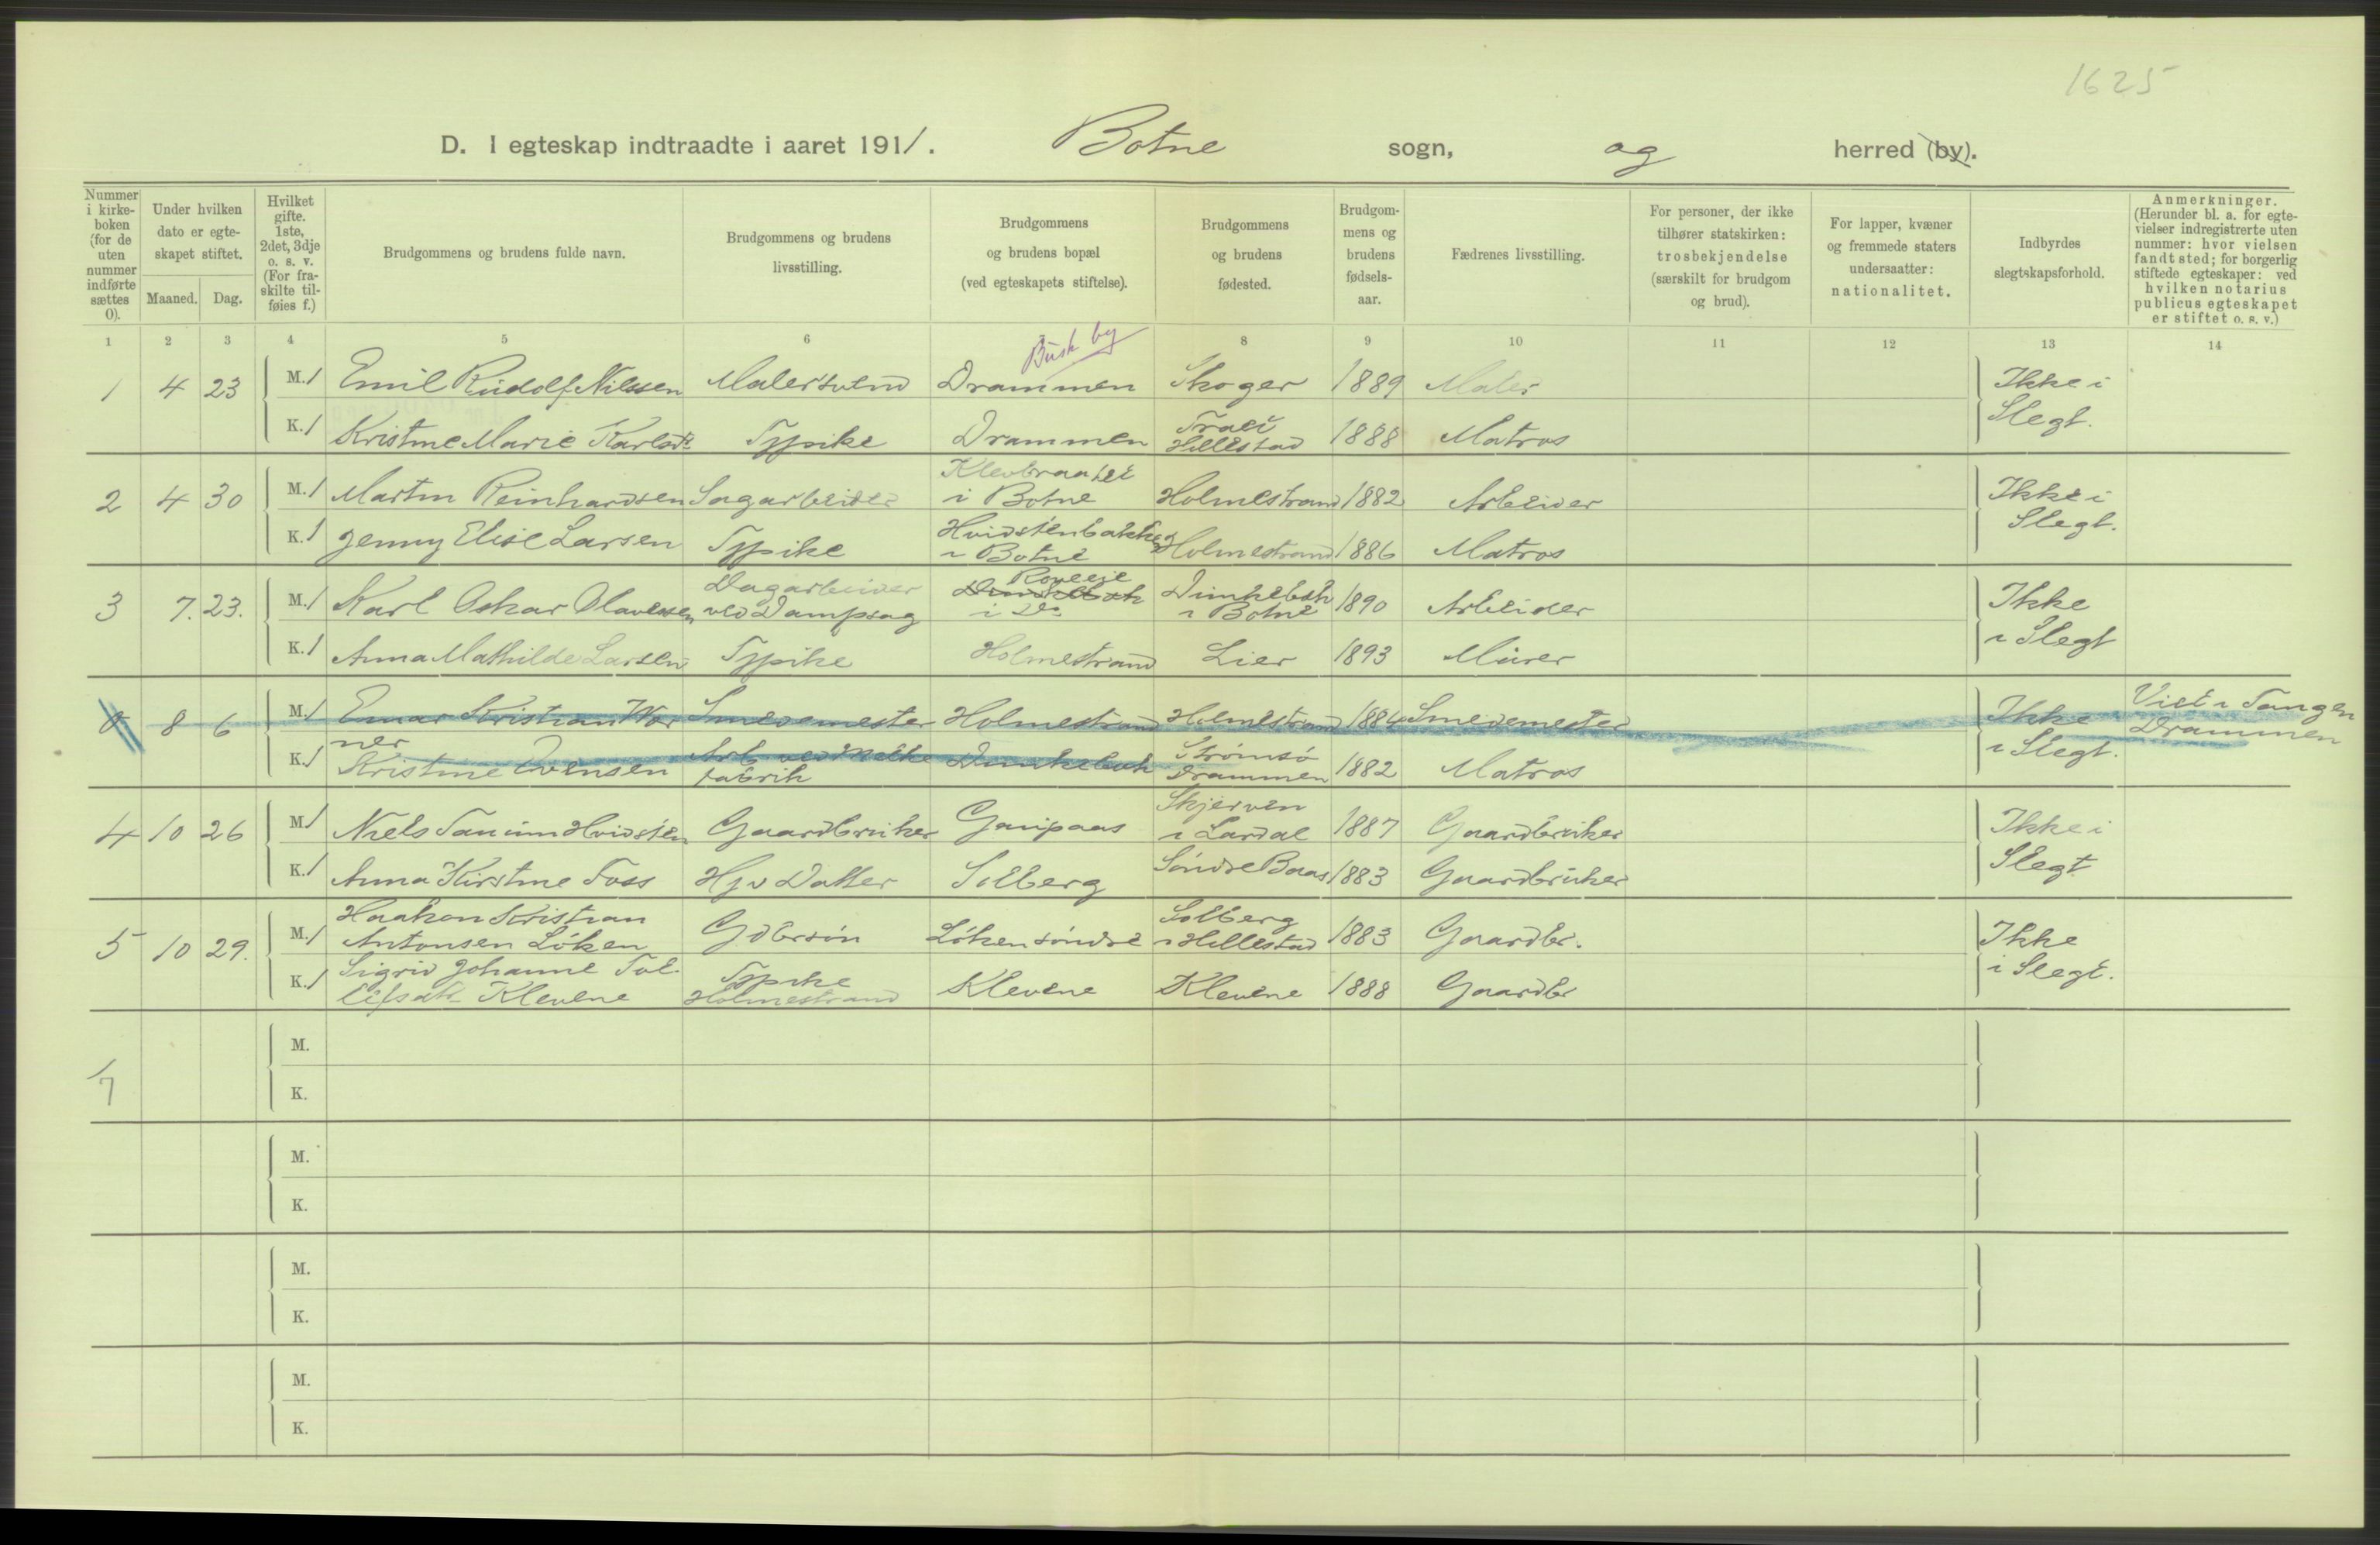 1625
D. I egteskap indtraadte i aaret 1911. Botne sogn, og herred (by).
Nummer i kirkeboken (for de uten nummer indførte sættes 0).
Under hvilken dato er egteskapet stiftet.
Maaned. Dag.
Hvilket gifte. 1ste, 2det, 3dje o. s. v. (For fraskilte tilføies f.)
Brudgommens og brudens fulde navn.
Brudgommens og brudens livsstilling.
Brudgommens og brudens bopæl (ved egteskapets stiftelse).
Brudgommens og brudens fødested.
Brudgommens og brudens fødselsaar.
Fædrenes livsstilling.
For personer, der ikke tilhører statskirken: trosbekjendelse (særskilt for brudgom og brud).
For lapper, kvæner og fremmede staters undersaatter: nationalitet.
Indbyrdes slegtskapsforhold.
Anmerkninger. (Herunder bl. a. for egtevielser indregistrerte uten nummer: hvor vielsen fandt sted; for borgerlig stiftede egteskaper: ved hvilken notarius publicus egteskapet er stiftet o. s. v.)
1 2 3 4 5 6 8 9 10 11 12 13 14
Busk by
1 4 23 M. 1 Emil Rudolf Nilssen Malersvend Drammen Skoger 1889 Maler Ikke i Slegt.
K. 1 Kristine Marie Karlsdr Typike Drammen Hillestad 1888 Matros
2 4 30 M. 1 Martin Reinhardsen Sagarbeider Klevbraatet i Botne Holmestrand 1882 Arbeider Ikke i Slegt.
K. 1 Jenny Elise Larsen Typike Hvidstenbakken i Botne Holmestrand 1886 Matros
3 7. 23. M. 1 Karl Oskar Olavessen Dagarbeider ved Dampsag i Do Dunkebek i Botne 1890 Arbeider Ikke i Slegt
K. 1 Anna Mathilde Larsen Typike Holmestrand Lier 1893 Murer
0 8 6 M. 1 Einar Kristian Werner Smedemester Holmestrand Holmestrand 1884 Smedemester Ikke i Slegt. Viet i Tangen Drammen
K. 1 Kristine Evensen Arb. ved Melkefabrik Dunkebek Strømsø Drammen 1882 Matros
4 10 26 M. 1 Niels Tanum Hvidsten Gaardbruker Gaupaas Skjerven i Lardal 1887 Gaardbruker Ikke i Slegt
K. 1 Anna Kirstine Foss Hjv Datter Solberg Søndre Baas 1883 Gaardbruker
5 10 29. M. 1 Haakon Kristian Antonsen Løken Gdbrsøn Løken søndre Solberg i Hillestad 1883 Gaardbr. Ikke i Slegt.
K. 1 Sigrid Johanne Klevene Typike Holmestrand Klevene Klevene 1888 Gaardbr
M.
K.
M.
K.
M.
K.
M.
K.